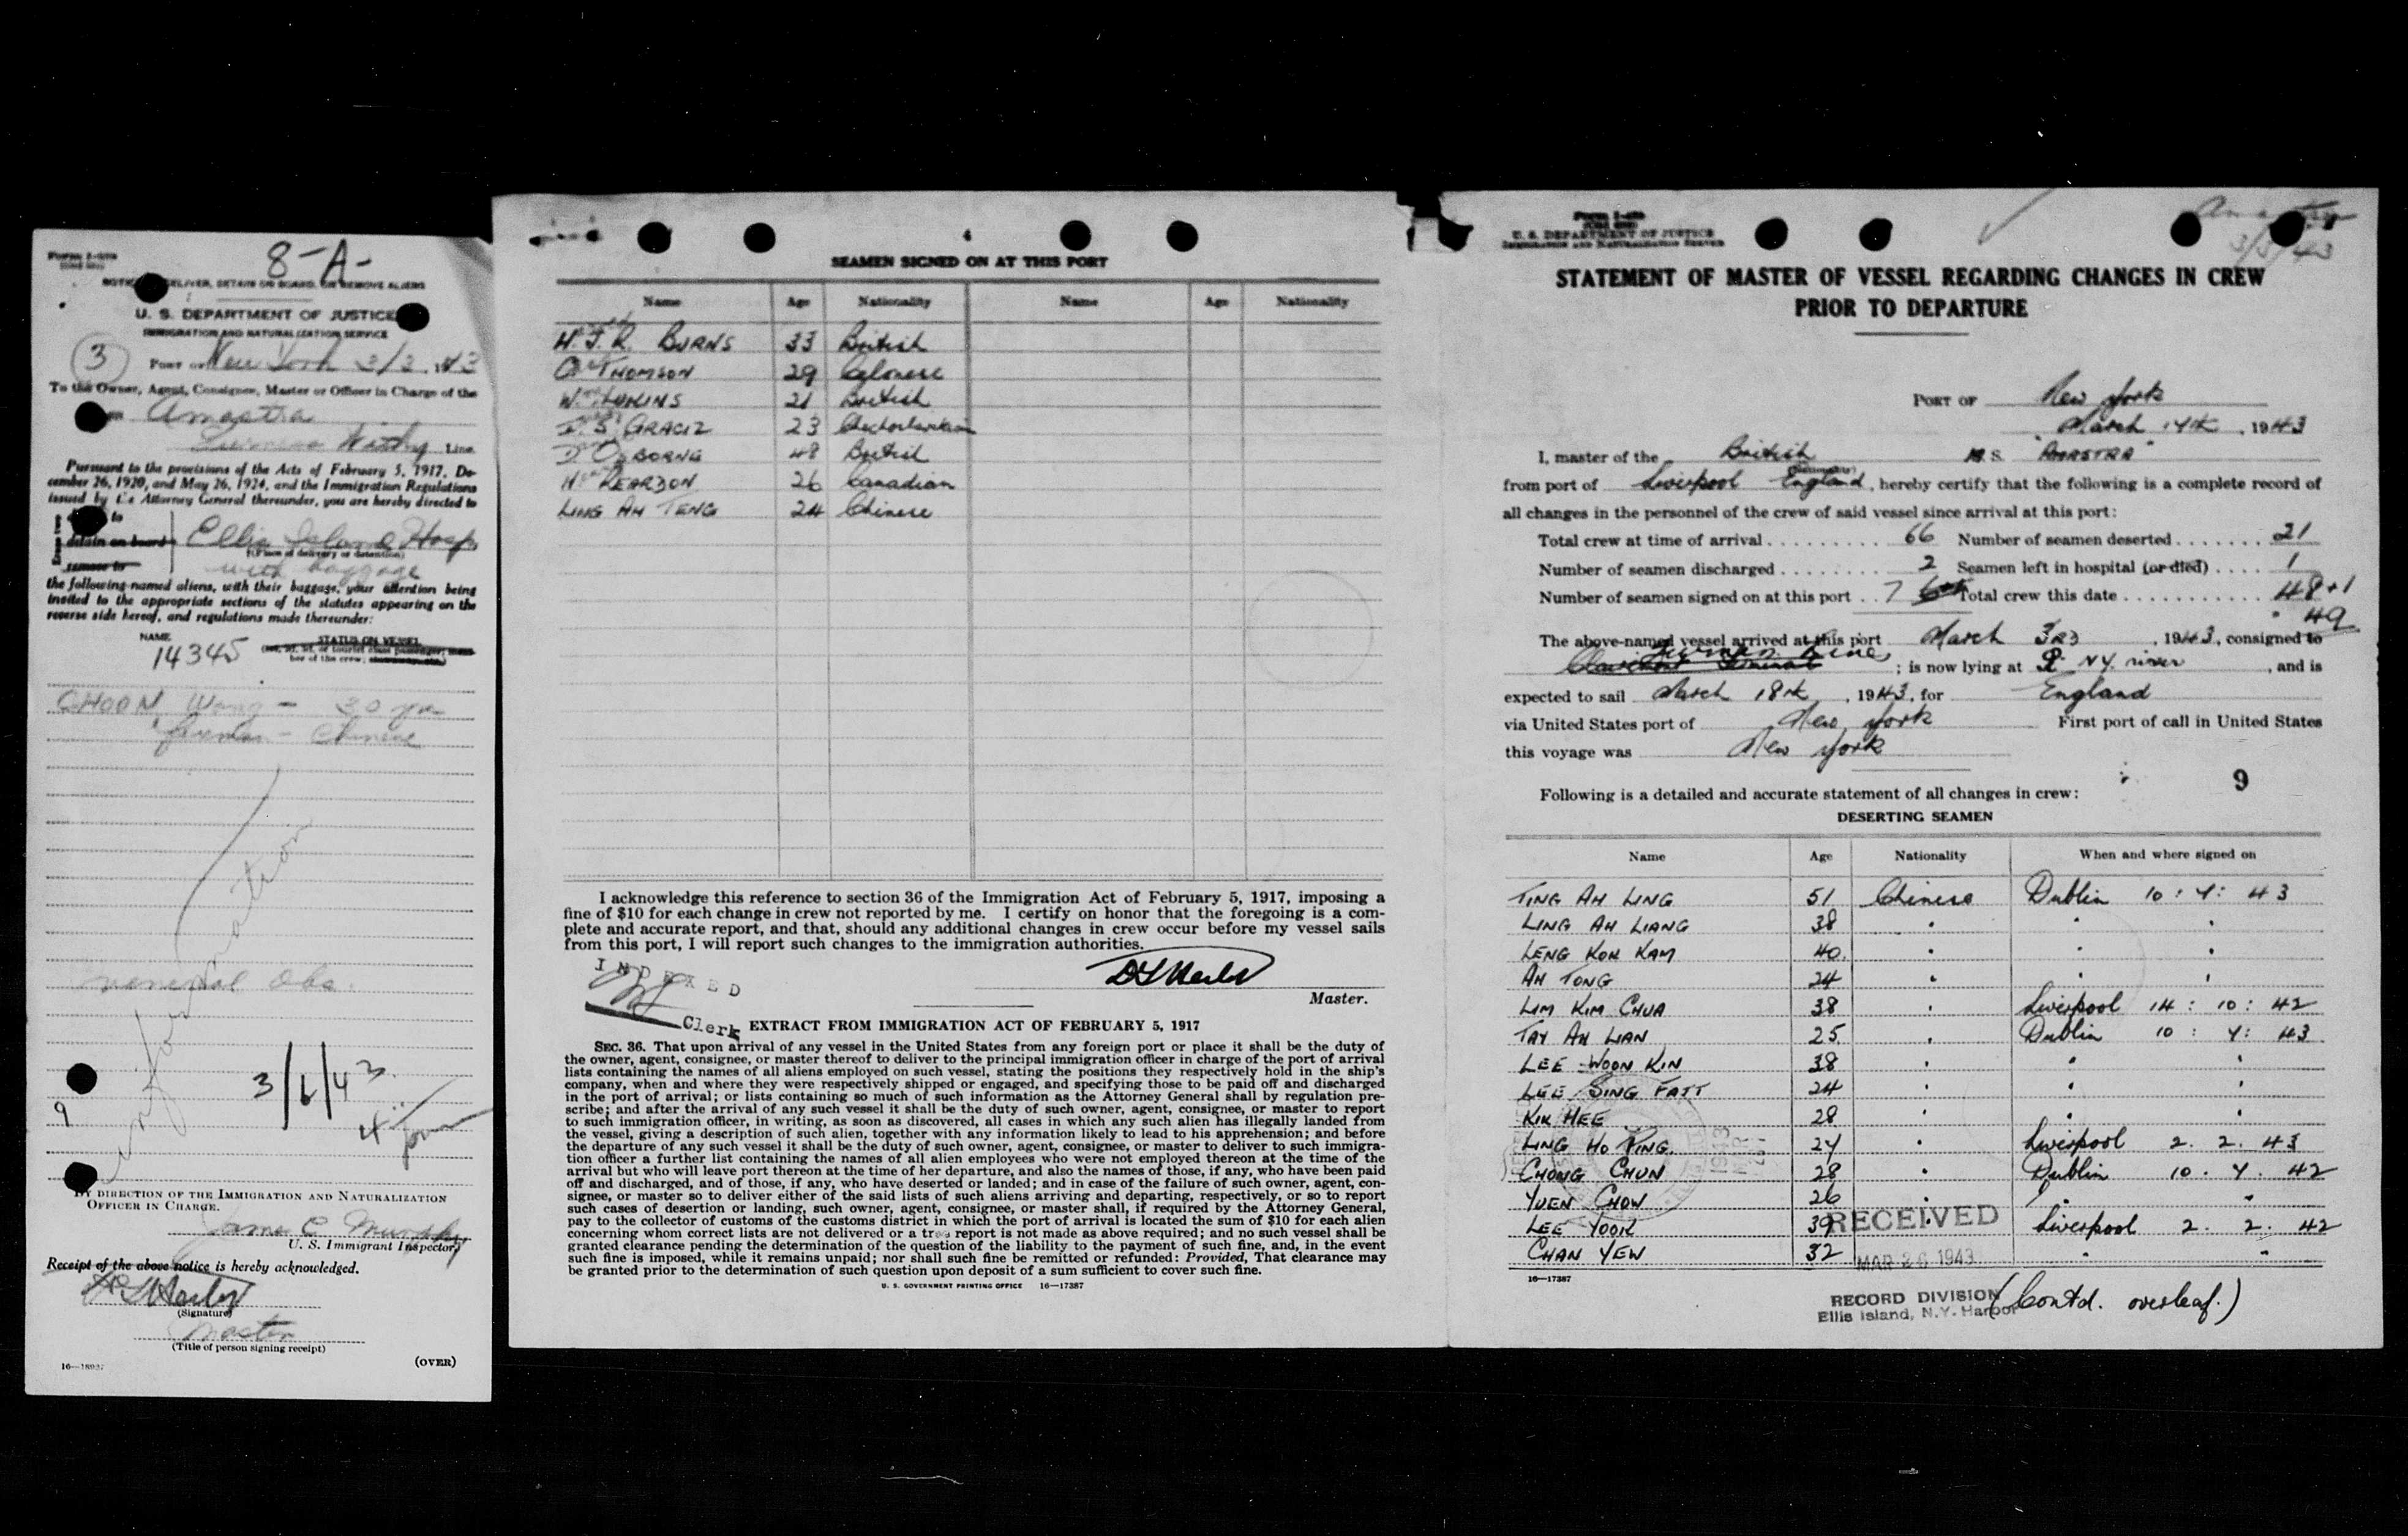 8-A-
NOTICE DELIVER, DETAIN ON BOARD, OR REMOVE ALIENS
U. S. DEPARTMENT OF JUSTICE
IMMIGRATION AND NATURALIZATION SERVICE
3
PORT OF New York 3/3 1943
To the Owner, Agent, Consignee, Master or Officer in Charge of the
Amastra
Withy Line
Pursuant to the provisions of the Acts of February 5, 1917, De-
cember 26, 1920, and May 26, 1924, and the Immigration Regulations
issued by the Attorney General thereunder, you are hereby directed to
to
detain on board
Ellis Island Hosp
(Place of delivery or detention)
remove to
with baggage
the following-named aliens, with their baggage, your attention being
invited to the appropriate sections of the statutes appearing on the
reverse side hereof, and regulations made thereunder:
NAME
STATUS ON VESSEL
14345
ber of the crew;
CHOON, Wong - 30 yrs
Chinese
Obs.
3/6/43
9
BY DIRECTION OF THE IMMIGRATION AND NATURALIZATION
OFFICER IN CHARGE.
James C Murphy
U. S. Immigrant Inspector
Receipt of the above notice is hereby acknowledged.
(Signature)
Master
(Title of person signing receipt)
(OVER)
SEAMEN SIGNED ON AT THIS PORT
Name Age Nationality Name Age Nationality
H. J. R. BURNS 33 British
C. THOMSON 29 Celonese
W. 21 British
GRACIZ 23
D OSBORNG 48 British
H REARDON 26 Canadian
LING AH TENG 24 Chinese
I acknowledge this reference to section 36 of the Immigration Act of February 5, 1917, imposing a
fine of $10 for each change in crew not reported by me. I certify on honor that the foregoing is a com-
plete and accurate report, and that, should any additional changes in crew occur before my vessel sails
from this port, I will report such changes to the immigration authorities.
INDEXED
Master.
Clerk
EXTRACT FROM IMMIGRATION ACT OF FEBRUARY 5, 1917
SEC. 36. That upon arrival of any vessel in the United States from any foreign port or place it shall be the duty of
the owner, agent, consignee, or master thereof to deliver to the principal immigration officer in charge of the port of arrival
lists containing the names of all aliens employed on such vessel, stating the positions they respectively hold in the ship's
company, when and where they were respectively shipped or engaged, and specifying those to be paid off and discharged
in the port of arrival; or lists containing so much of such information as the Attorney General shall by regulation pre-
scribe; and after the arrival of any such vessel it shall be the duty of such owner, agent, consignee, or master to report
to such immigration officer, in writing, as soon as discovered, all cases in which any such alien has illegally landed from
the vessel, giving a description of such alien, together with any information likely to lead to his apprehension; and before
the departure of any such vessel it shall be the duty of such owner, agent, consignee, or master to deliver to such immigra-
tion officer a further list containing the names of all alien employees who were not employed thereon at the time of the
arrival but who will leave port thereon at the time of her departure, and also the names of those, if any, who have been paid
off and discharged, and of those, if any, who have deserted or landed; and in case of the failure of such owner, agent, con-
signee, or master so to deliver either of the said lists of such aliens arriving and departing, respectively, or so to report
such cases of desertion or landing, such owner, agent, consignee, or master shall, if required by the Attorney General,
pay to the collector of customs of the customs district in which the port of arrival is located the sum of $10 for each alien
concerning whom correct lists are not delivered or a true report is not made as above required; and no such vessel shall be
granted clearance pending the determination of the question of the liability to the payment of such fine, and, in the event
such fine is imposed, while it remains unpaid; nor shall such fine be remitted or refunded: Provided, That clearance may
be granted prior to the determination of such question upon deposit of a sum sufficient to cover such fine.
U. S. GOVERNMENT PRINTING OFFICE 16—17387
U. S. DEPARTMENT OF JUSTICE
IMMIGRATION AND NATURALIZATION SERVICE
3/3/43
STATEMENT OF MASTER OF VESSEL REGARDING CHANGES IN CREW
PRIOR TO DEPARTURE
PORT OF New York
March 17th, 1943
I, master of the British M.S. "AMASTRA"
from port of Liverpool England, hereby certify that the following is a complete record of
all changes in the personnel of the crew of said vessel since arrival at this port:
Total crew at time of arrival 66 Number of seamen deserted 21
Number of seamen discharged 2 Seamen left in hospital (or died) 1
Number of seamen signed on at this port 7 Total crew this date 48+1
49
The above-named vessel arrived at this port March 3RD, 1943, consigned to
Line; is now lying at N.Y. river, and is
expected to sail March 18th, 1943, for England
via United States port of New York First port of call in United States
this voyage was New York
9
Following is a detailed and accurate statement of all changes in crew:
DESERTING SEAMEN
Name Age Nationality When and where signed on
TING AH LING 51 Chinese Dublin 10 : 4 : 43
LING AH LIANG 38 " " "
LENG KOK KAM 40 " " "
AH TONG 24 " " "
LIM KIM CHUA 38 " Liverpool 14 : 10 : 42
TAY AH LIAN 25 " Dublin 10 : 4 : 43
LEE WOON KIN 38 " " "
LEE SING FATT 24 " " "
KIK HEE 28 " " "
LING HO PING. 24 " Liverpool 2. 2. 43
CHONG CHUN 28 " Dublin 10. 4. 42
YUEN CHOW 26 " " "
LEE YOOK 39 " Liverpool 2. 2. 42
CHAN YEW 32 " "
16—17387
RECEIVED
MAR 26 1943
RECORD DIVISION
Ellis Island, N.Y. Harbor
(Contd. overleaf.)